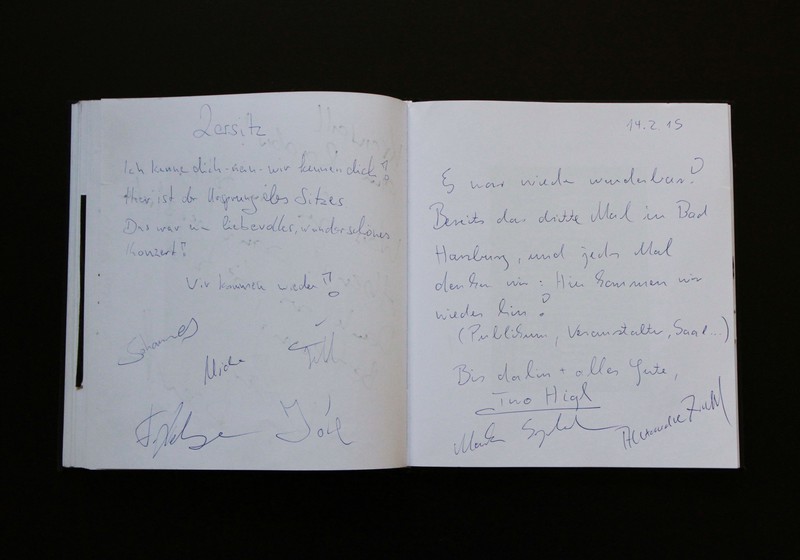 2ersitz
Ich kenne dich - nein - wir kennen dich!
Hier ist der Ursprung des Sitzes
Das war ein liebevolles, wunderschönes
Konzert!
Wir kommen wieder!!
Johannes
Micha
Till
Jörg
14.2.15
Es war wieder wunderbar!
Bereits das dritte Mal in Bad
Hamburg, und jedes Mal
denken wir: Hier kommen wir
wieder hin!
(Publikum, Veranstalter, Saal...)
Bis dahin + alles Gute,
Two High
Alexander